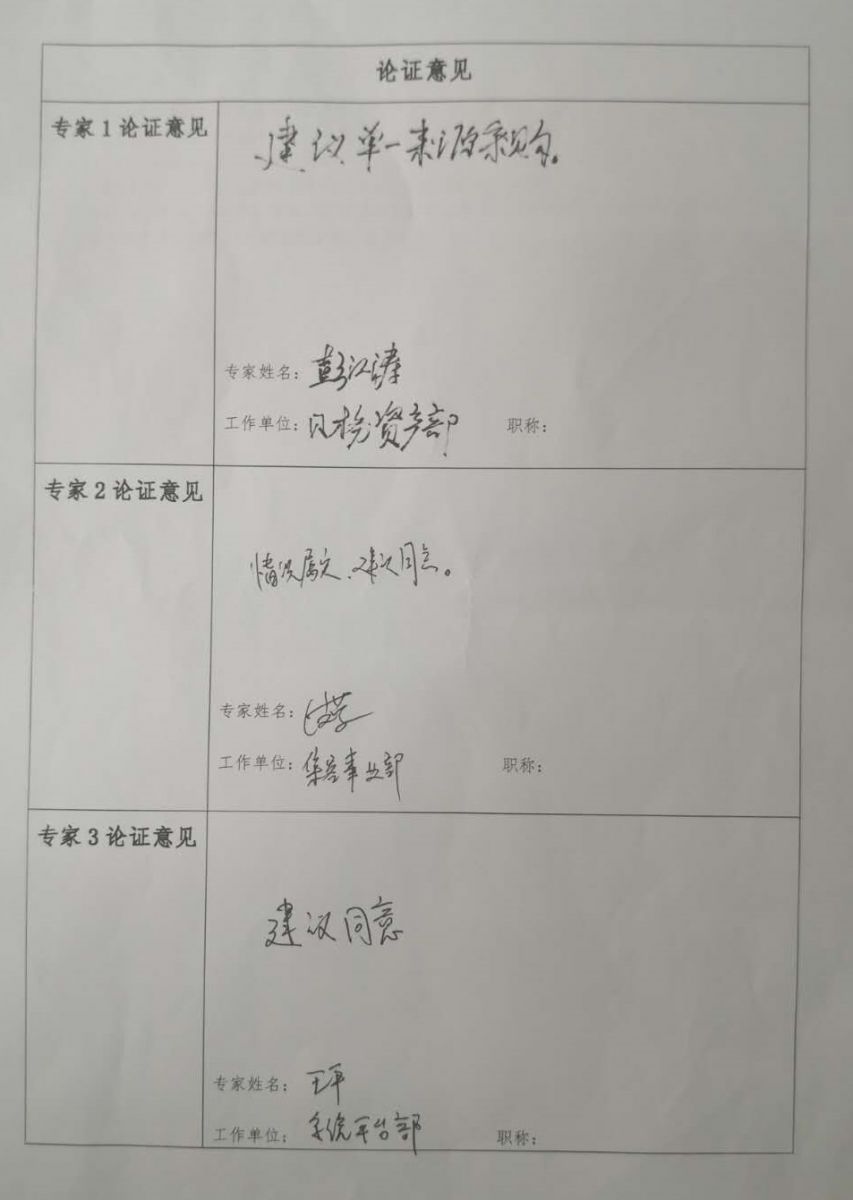 论证意见
专家1论证意见
建议单一来源采购。
专家姓名：彭江涛
工作单位：资产部 职称：
专家2论证意见
情况属实，建议同意。
专家姓名：
工作单位：集客事业部 职称：
专家3论证意见
建议同意
专家姓名：王平
工作单位：系统平台部 职称：